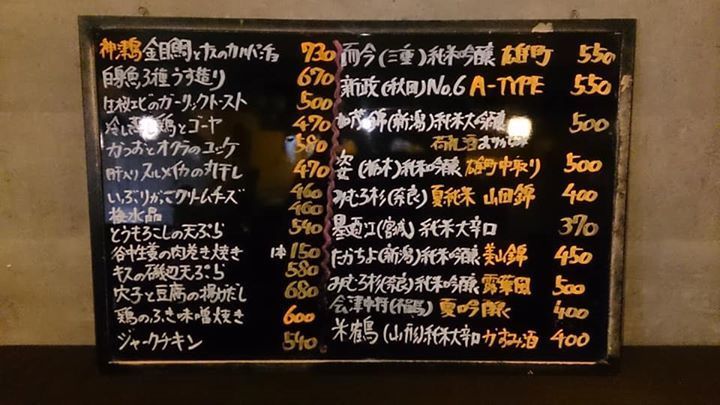 神津島 金目鯛とナスのカルパッチョ 730
白身魚3種うす造り 670
生桜エビのガーリックトースト 500
冷し 鶏とゴーヤ 470
かつおとオクラのユッケ 580
肝入りスルメイカの丸干し 470
いぶりがっこクリームチーズ 460
460
とうもろこしの天ぷら 540
谷中生姜の肉巻き焼き 1本150
キスの磯辺天ぷら 580
穴子と豆腐の揚げだし 680
鶏のふき味噌焼き 600
ジャークチキン 540
而今(三重)純米吟醸 雄町 550
新政(秋田)No.6 A-TYPE 550
加茂錦(新潟)純米大吟醸 500
(栃木)純米吟醸 雄町中取り 500
みむろ杉(奈良)夏純米 山田錦 400
墨廼江(宮城)純米大辛口 370
たかちよ(新潟)純米吟醸 美山錦 450
みむろ杉(奈良)純米吟醸 露葉風 500
会津中将(福島)夏吟醸 400
米鶴(山形)純米大辛口 かすみ酒 400